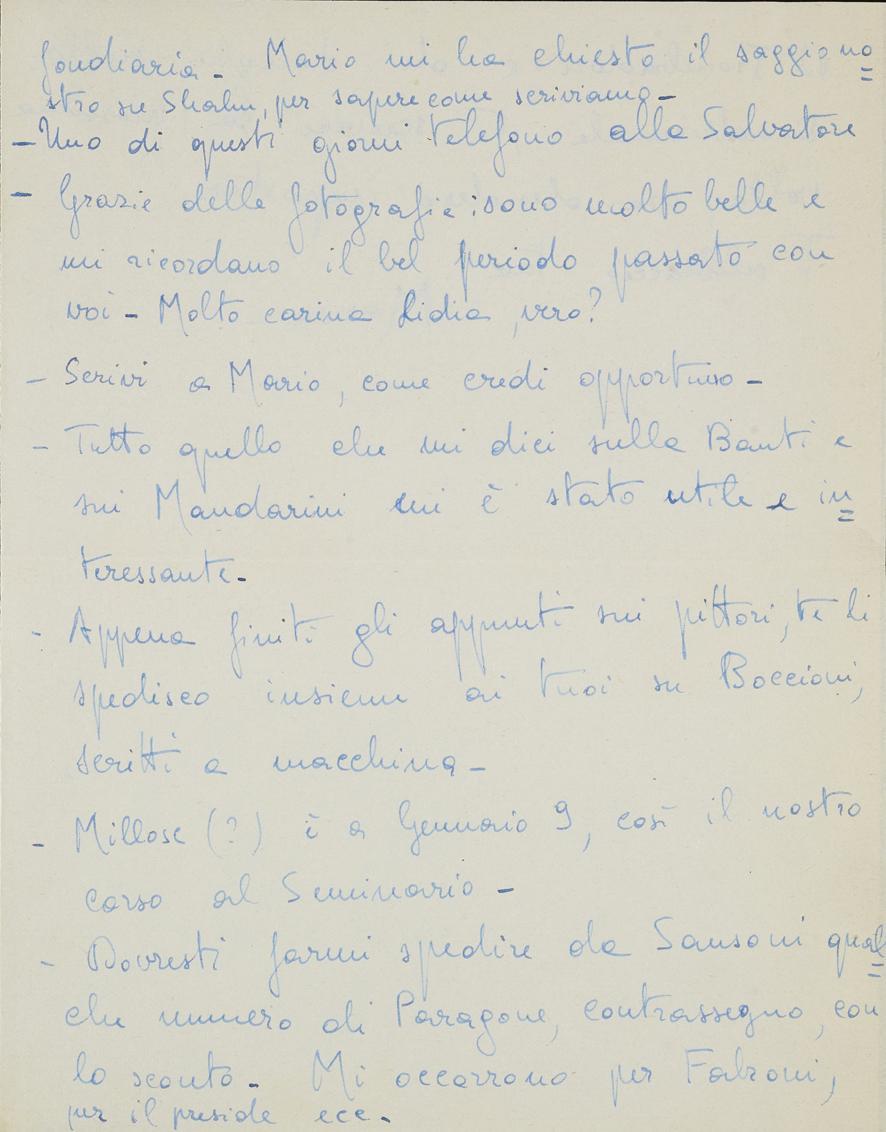 fondiaria - Mario mi ha chiesto il saggio no=
stro su Shahn, per sapere come scriviamo -
- Uno di questi giorni telefono alla Salvatore
- Grazie delle fotografie: sono molto belle e
mi ricordano il bel periodo passato con
voi - Molto carina Lidia, vero?
- Scrivi a Mario, come credi opportuno -
- Tutto quello che mi dici sulla Banti e
sui Mandarini mi è stato utile e in=
teressante -
- Appena finiti gli appunti sui pittori, te li
spedisco insieme ai tuoi su Boccioni,
scritti a macchina -
- Millose (?) è a Gennaio 9, così il nostro
corso al Seminario -
- Dovresti farmi spedire da Sansoni qual=
che numero di Paragone, contrassegno, con
lo sconto - Mi occorrono per Falzoni,
per il preside ecc -